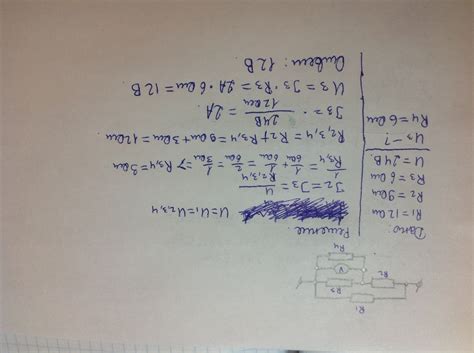 R1
R3 R2
V
R4
Дано:
R1 = 12 Ом
R2 = 9 Ом
R3 = 6 Ом
U = 24 В
U3 - ?
R4 = 6 Ом
Решение.
U = U1 = U2,3,4
I2 = I3 = U/R2,3,4
1/R3,4 = 1/6Ом + 1/6Ом = 2/6Ом = 1/3Ом => R3,4 = 3Ом
R2,3,4 = R2 + R3,4 = 9Ом + 3Ом = 12Ом
I3 = 24В/12Ом = 2А
U3 = I3 · R3 = 2А · 6Ом = 12В
Ответ: 12В